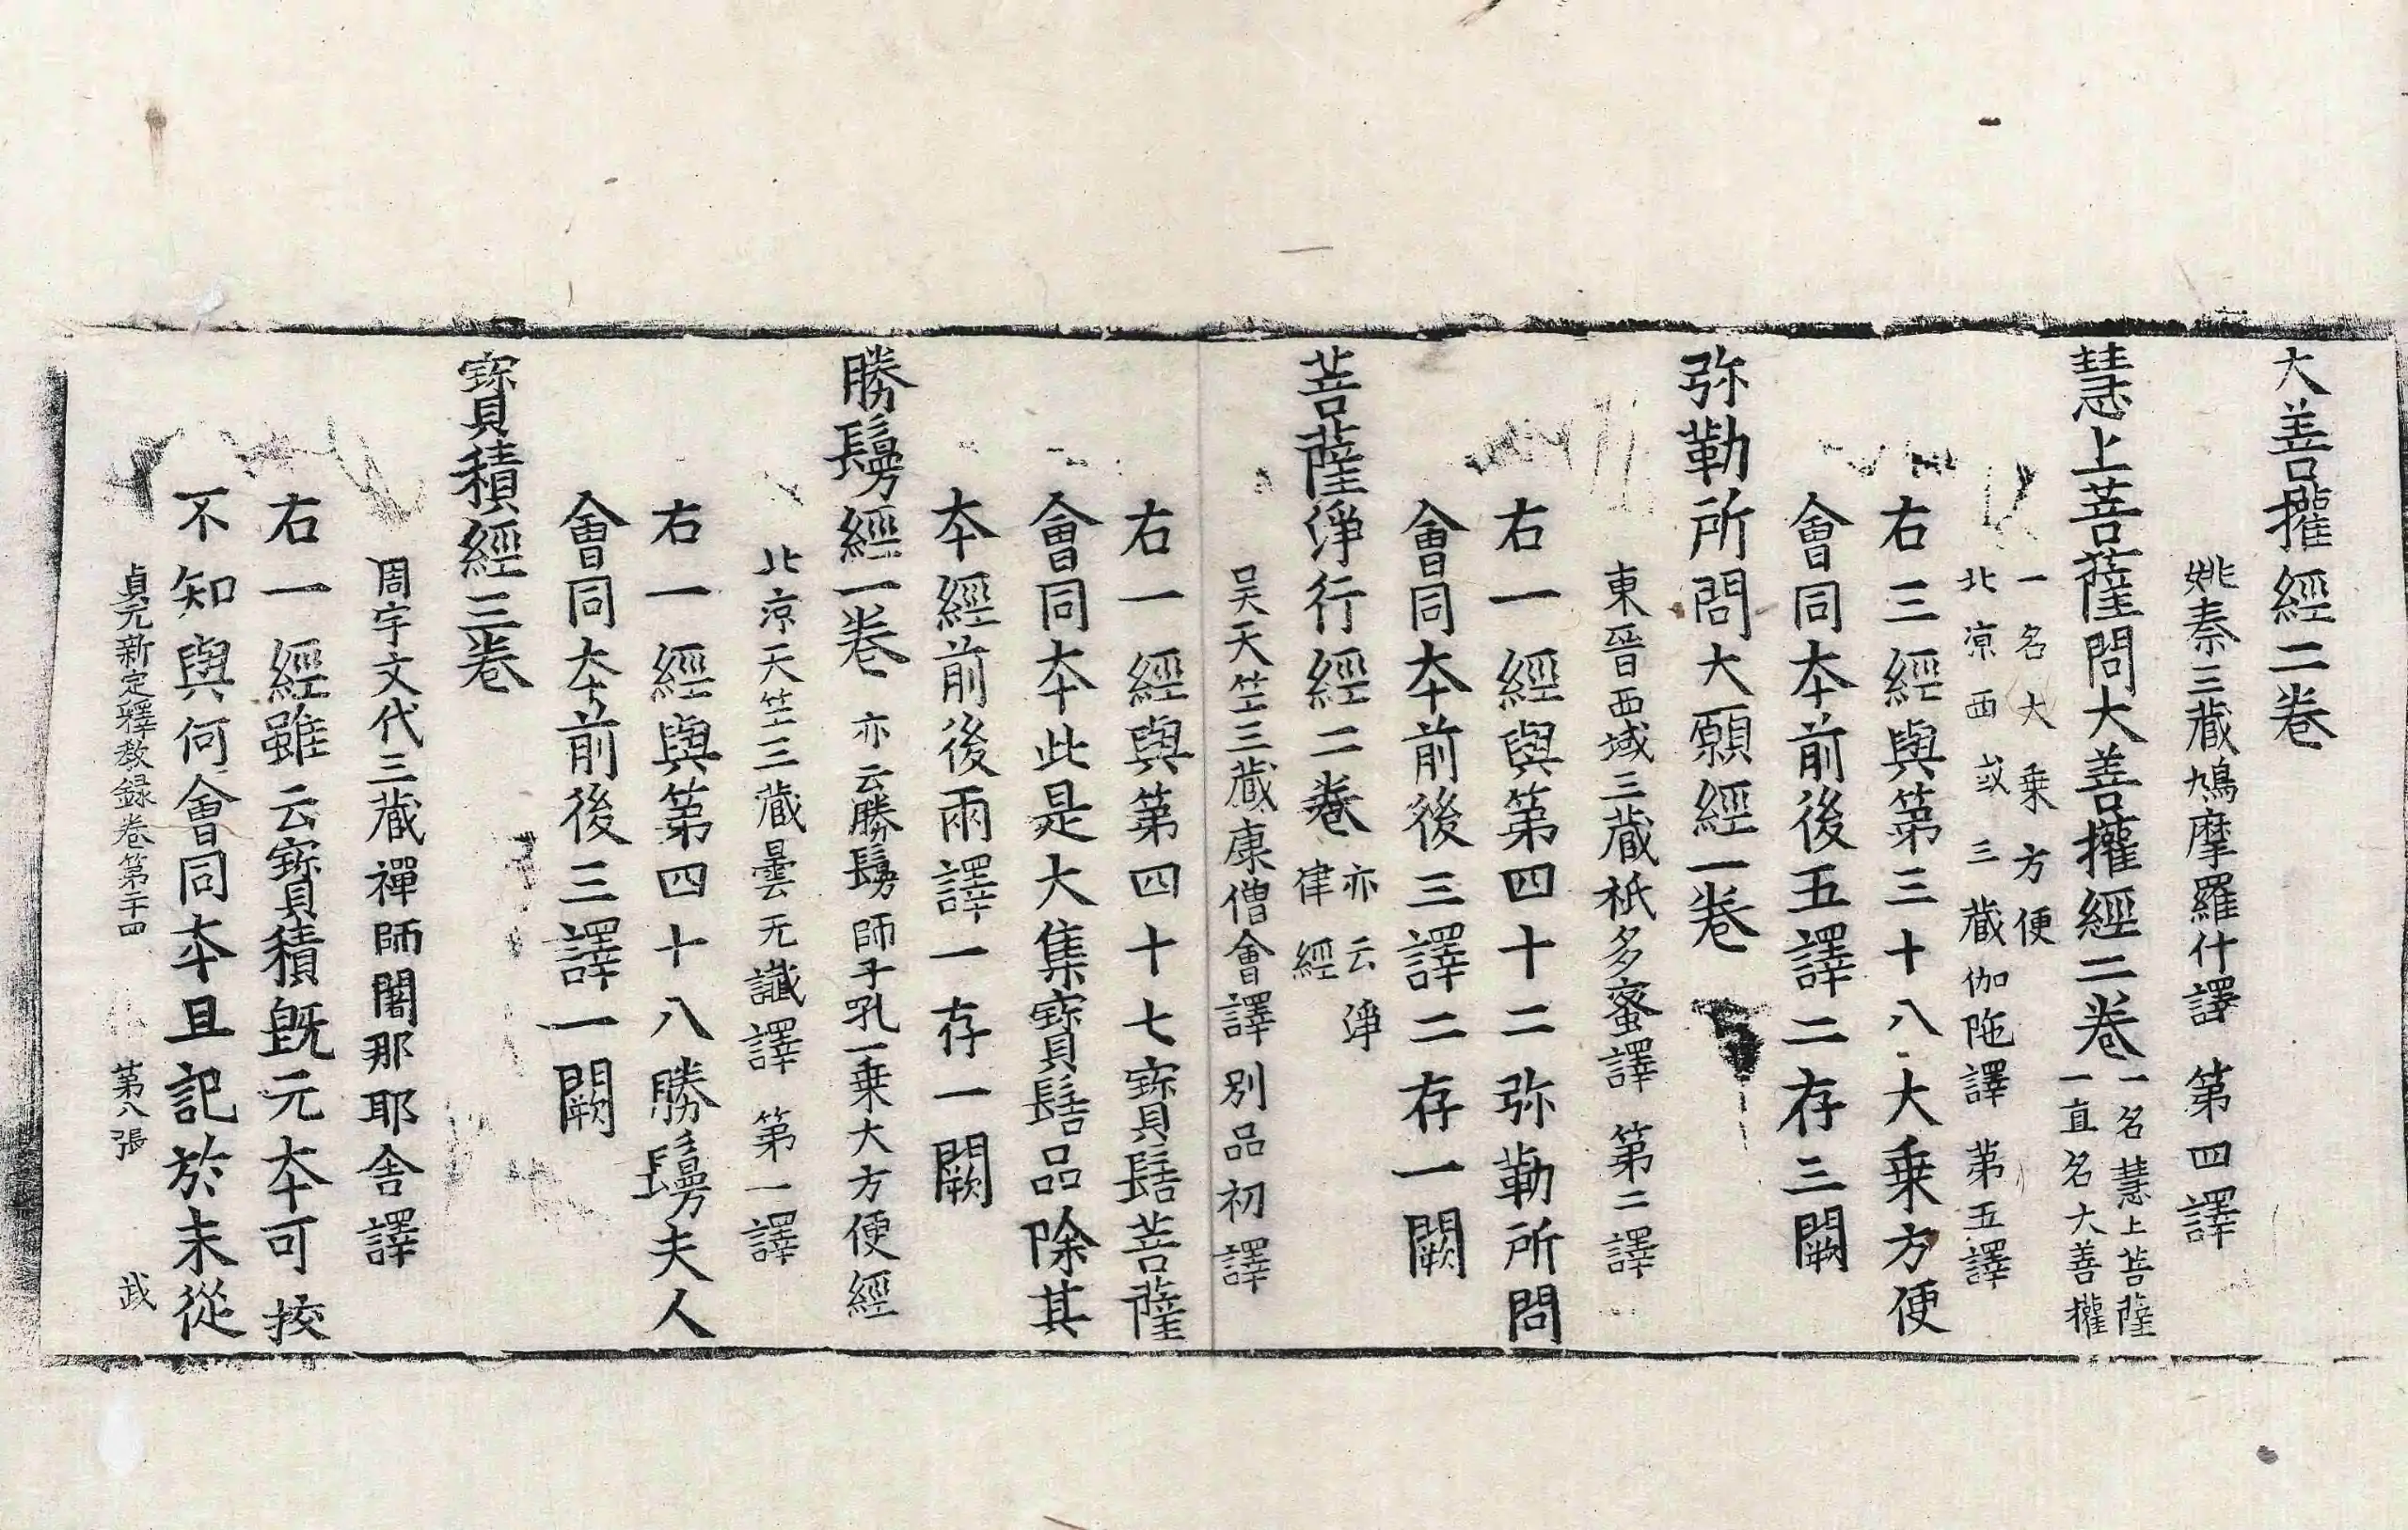 大善攉經二卷
姚秦三蔵鳩摩羅什譯 第四譯
慧上菩薩問大善攉經二卷
一名慧上菩薩
一直名大善攉
一名大乗方便
北凉西域三蔵伽陁譯 苐五譯
右三經與第三十八大乗方便
會同夲前後五譯二存三闕
弥勒所問大願經一卷
東晉西域三蔵祇多蜜譯 第二譯
右一經與第四十二弥勒所問
會同夲前後三譯二存一闕
菩薩淨行經二卷
亦云淨
律經
吴天竺三蔵康僧會譯別品初譯
右一經與第四十七寶髻菩薩
會同夲此是大集寶髻品除其
夲經前後兩譯一存一闕
勝鬘經一卷 亦云勝鬘師子吼一乗大方便經
北凉天竺三蔵曇无讖譯 第一譯
右一經與第四十八勝鬘夫人
會同夲前後三譯一闕
寶積經三卷
周宇文代三蔵禪師闍那耶舍譯
右一經雖云寶積旣无夲可挍
不知與何會同夲且記於末從
貞元新定釋教録卷第二十四 第八張 武